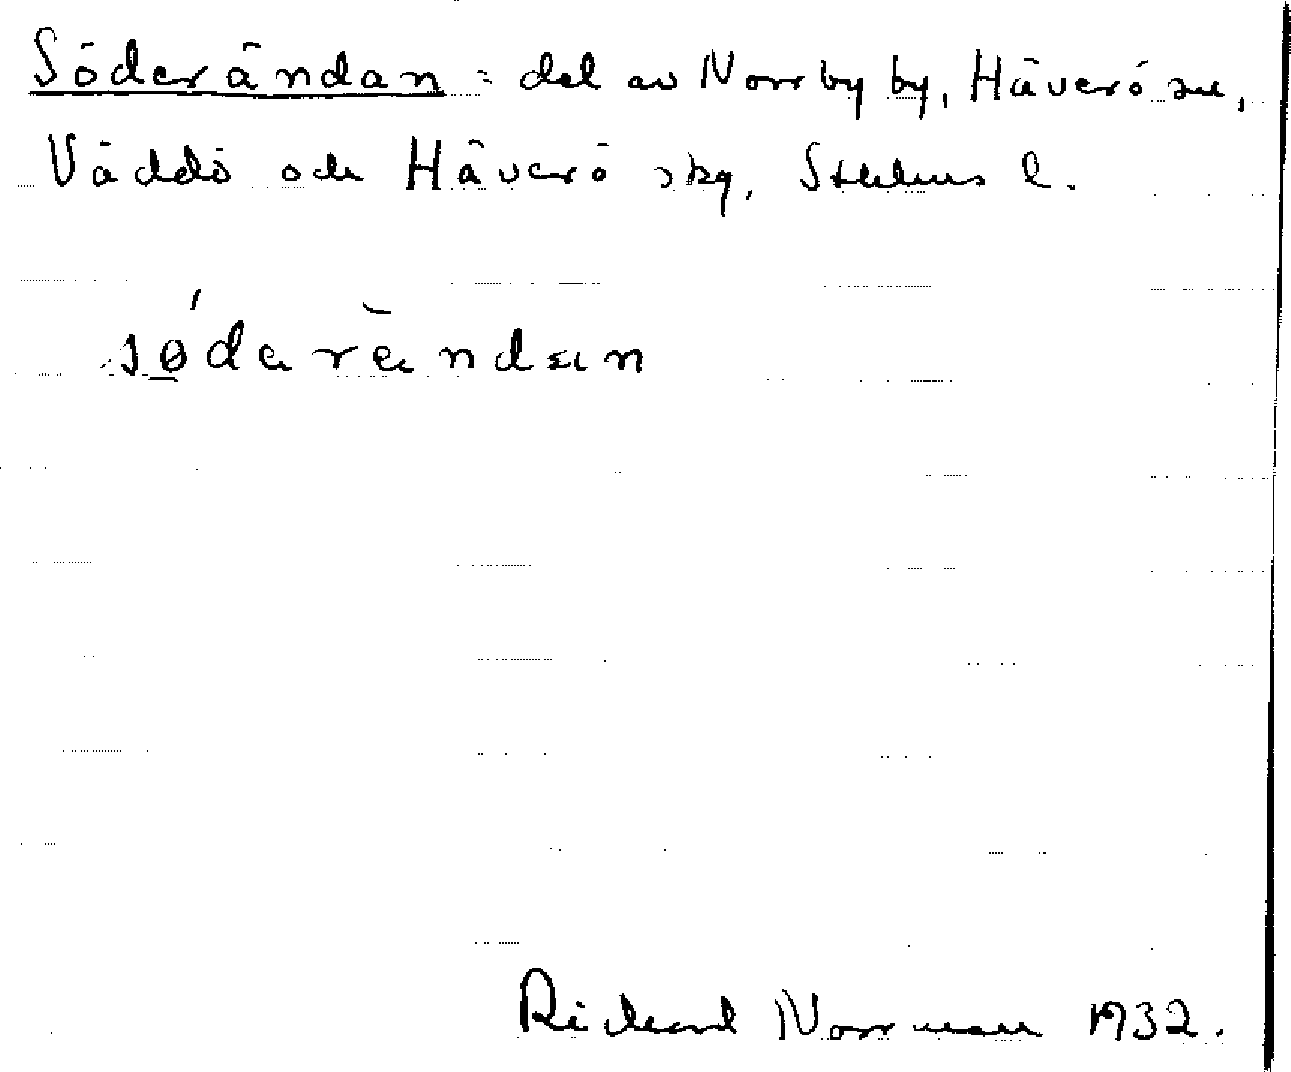 Söderändan = del av Norrby by, Häverö sn,
Väddö och Häverö skg, Sthlms l.
södarändan
Richard Norrman 1932.